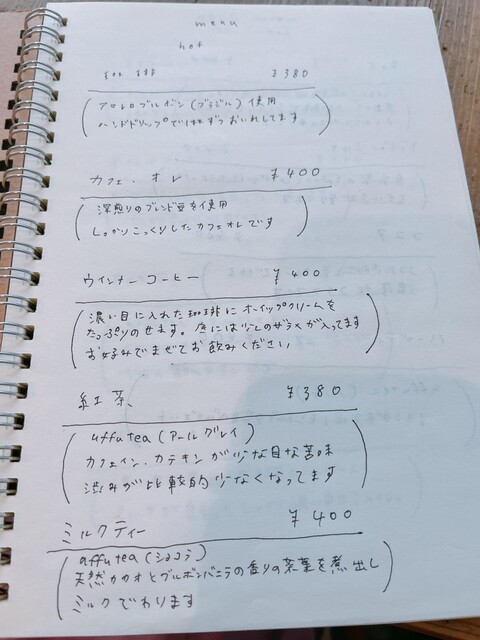 menu
hot
珈琲 ¥380
(アマレロブルボン(ブラジル)使用
ハンドドリップで1杯ずつおいれしてます)
カフェ・オレ ¥400
(深煎りのブレンド豆を使用
しっかりこっくりしたカフェオレです)
ウインナーコーヒー ¥400
(濃い目に入れた珈琲にホイップクリームを
たっぷりのせます。底には少しのザラメが入ってます
お好みでまぜてお飲みください)
紅茶 ¥380
(uffu tea(アールグレイ)
カフェイン、カテキンが少な目な為苦味
渋みが比較的少なくなってます)
ミルクティー ¥400
(uffu tea(ショコラ)
天然カカオとブルボンバニラの香りの茶葉を煮出し
ミルクでわります)